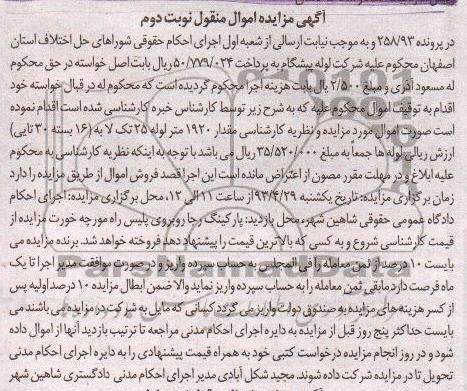 آگهی مزایده اموال منقول نوبت دوم
در پرونده ۲۵۸/۹۳ و به موجب نیابت ارسالی از شعبه اول اجرای احکام حقوقی شوراهای حل اختلاف استان
اصفهان محکوم علیه شرکت لوله پیشگام به پرداخت ۵۰/۷۷۹/۰۲۴ ریال بابت اصل خواسته در حق محکوم
له مسعود آذری و مبلغ ۲/۵۰۰ ریال بابت هزینه اجرا محکوم گردیده است که محکوم له در قبال خواسته خود
اقدام به توقیف اموال محکوم علیه که به شرح زیر توسط کارشناس خبره کارشناسی شده است اقدام نموده
است صورت اموال مورد مزایده و نظریه کارشناسی مقدار ۱۹۲۰ متر لوله ۲۵ تک لا به (۱۶ بسته ۳۰ تایی)
ارزش ریالی لوله ها جمعاً به مبلغ ۳۵/۵۲۰/۰۰۰ ریال می باشد با توجه به اینکه نظریه کارشناسی به محکوم
علیه ابلاغ و در مهلت مقرر مصون از اعتراض مانده است این اجرا قصد فروش اموال از طریق مزایده را دارد
زمان برگزاری مزایده: تاریخ یکشنبه ۹۳/۴/۲۹ از ساعت ۱۱ الی ۱۲، محل برگزاری مزایده: اجرای احکام
دادگاه عمومی حقوقی شاهین شهر، محل بازدید: پارکینگ رجا روبروی پلیس راه مورچه خورت مزایده از
قیمت کارشناسی شروع و به کسی که بالاترین قیمت را پیشنهاد دهد فروخته خواهد شد. برنده مزایده می
بایست ۱۰ درصد از ثمن معامله را فی المجلس به حساب سپرده واریز و در صورت موافقت مدیر اجرا تا یک
ماه فرصت دارد مابقی ثمن معامله را به حساب سپرده واریز نماید والا ضمن ابطال مزایده ۱۰ درصد اولیه پس
از کسر هزینه های مزایده به صندوق دولت واریز می گردد کسانی که مایل به شرکت در مزایده می باشند می
بایست حداکثر پنج روز قبل از مزایده به دایره اجرای احکام مدنی مراجعه تا ترتیب بازدید آنها از اموال داده
شود و در روز انجام مزایده درخواست کتبی خود به همراه قیمت پیشنهادی را به دایره اجرای احکام مدنی
تحویل تا در مزایده شرکت داده شوند. مجید شکل آبادی مدیر اجرای احکام مدنی دادگستری شاهین شهر
ParsNamadData